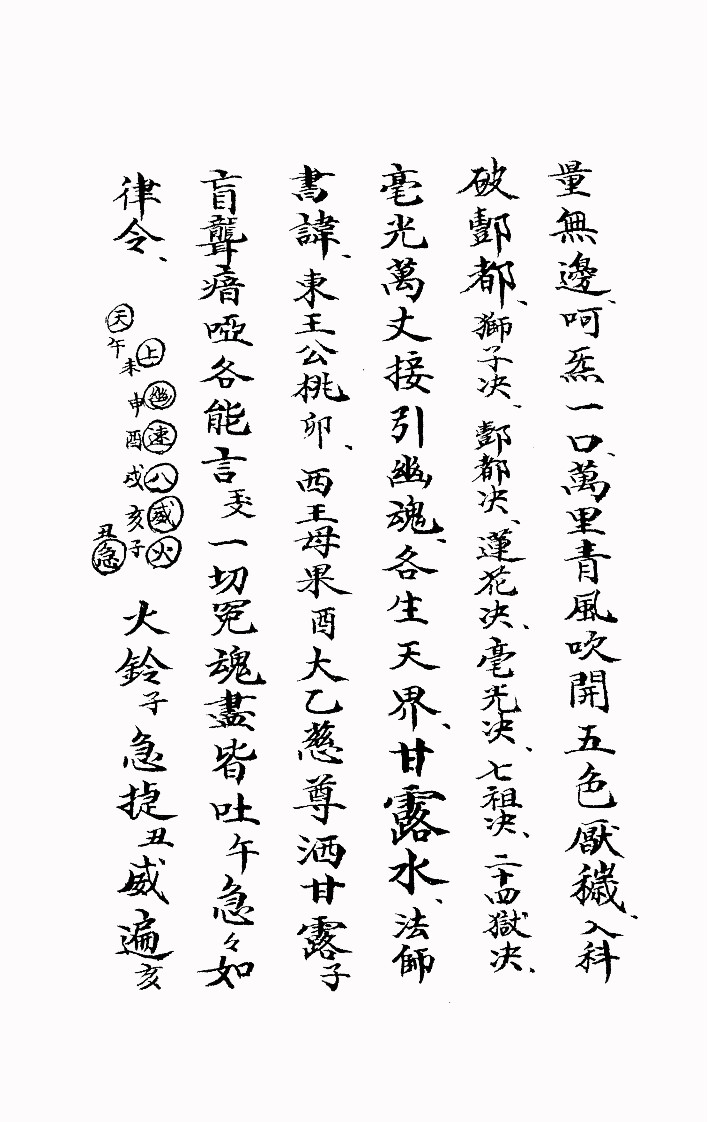 量無邊、呵炁一口、萬里青風吹開五色厭穢、入科
破酆都、獅子决、酆都决、蓮花决、毫光决、七祖决、二十四獄决、
毫光萬丈接引幽魂、各生天界、甘露水、法師
書諱、東王公桃卯、西王母果酉大乙慈尊洒甘露子
盲聾瘖啞各能言一切冤魂盡皆吐午急々如
律令、
天午 上未 幽申 速酉 八戌 威亥 火子 急丑
火鈴子急捷丑威遍亥